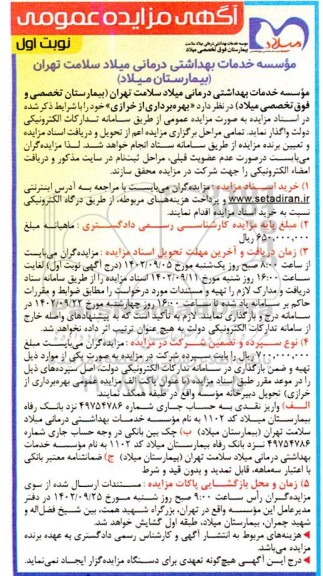 آگهی مزایده عمومی
میلاد
مؤسسه خدمات بهداشتی درمانی میلاد سلامت تهران
بیمارستان فوق تخصصی میلاد
نوبت اول
مؤسسه خدمات بهداشتی درمانی میلاد سلامت تهران
(بیمارستان میلاد)
مؤسسه خدمات بهداشتی درمانی میلاد سلامت تهران (بیمارستان تخصصی و
فوق تخصصی میلاد) در نظر دارد «بهره‌برداری از خرازی» خود را با شرایط ذکر شده
در اسناد مزایده به صورت مزایده عمومی از طریق سامانه تدارکات الکترونیکی
دولت واگذار نماید. تمامی مراحل برگزاری مزایده اعم از تحویل و دریافت اسناد مزایده
و تعیین برنده مزایده از طریق سامانه ستاد انجام خواهد شد. لذا مزایده‌گران
می‌بایست درصورت عدم عضویت قبلی، مراحل ثبت‌نام در سایت مذکور و دریافت
امضاء الکترونیکی را جهت شرکت در مزایده محقق سازند.
۱) خرید اسناد مزایده : مزایده‌گران می‌بایست با مراجعه به آدرس اینترنتی
www.setadiran.ir و پرداخت هزینه‌های مربوطه، از طریق درگاه الکترونیکی
نسبت به خرید اسناد مزایده اقدام نمایند.
۲) مبلغ پایه مزایده کارشناسی رسمی دادگستری : ماهیانه مبلغ
۶۵۰،۰۰۰،۰۰۰ ریال
۳) زمان دریافت و آخرین مهلت تحویل اسناد مزایده : مزایده‌گران می‌بایست
از ساعت ۸:۰۰ صبح روز یک‌شنبه مورخ ۱۴۰۲/۰۹/۰۵ (درج آگهی نوبت اول) لغایت
۱۶:۰۰ روز شنبه مورخ ۱۴۰۲/۰۹/۱۱ اسناد مزایده را از طریق سامانه ستاد
دریافت و مدارک لازم را تهیه و مستندات مورد درخواست را مطابق ضوابط و مقررات
حاکم بر سامانه یاد شده تا ساعت ۱۶:۰۰ روز چهارشنبه مورخ ۱۴۰۲/۰۹/۲۲ در
سامانه درج و بارگذاری نمایند. لازم به تأکید است که به پیشنهادهای واصله خارج
از سامانه تدارکات الکترونیکی دولت به هیچ عنوان ترتیب اثر داده نخواهد شد.
۴) نوع سپرده و تضمین شرکت در مزایده : مزایده‌گران می‌بایست مبلغ
۷۰۰،۰۰۰،۰۰۰ ریال را بابت سپرده شرکت در مزایده به صورت یکی از موارد ذیل
تهیه و ضمن بارگذاری در سامانه تدارکات الکترونیکی دولت، اصل سپرده‌های ذیل
را در موعد مقرر طبق اسناد مزایده با عنوان پاکت الف مزایده عمومی بهره‌برداری از
خرازی) تحویل دبیرخانه مؤسسه واقع در طبقه همکف نمایند.
الف) واریز نقدی به حساب جاری شماره ۴۹۷۵۴۷۸۶ نزد بانک رفاه
بیمارستان میلاد کد ۱۱۰۲ به نام مؤسسه خدمات بهداشتی درمانی میلاد
سلامت تهران (بیمارستان میلاد) ب) چک بین بانکی در وجه حساب جاری شماره
۴۹۷۵۴۷۸۶ نزد بانک رفاه بیمارستان میلاد کد ۱۱۰۲ به نام مؤسسه خدمات
بهداشتی درمانی میلاد سلامت تهران (بیمارستان میلاد) ج) ضمانتنامه معتبر بانکی
با اعتبار سه‌ماهه، قابل تمدید و بدون قید و شرط
۵) زمان و محل بازگشایی پاکات مزایده : مستندات ارسال شده از سوی
مزایده‌گران رأس ساعت ۹:۰۰ صبح روز شنبه مورخ ۱۴۰۲/۰۹/۲۵ در دفتر
مدیرعامل این مؤسسه واقع در تهران، بزرگراه شهید همت، بین شیخ فضل‌اله و
شهید چمران، بیمارستان میلاد، طبقه اول گشایش خواهد شد.
هزینه‌های مربوط به انتشار آگهی و کارشناس رسمی دادگستری به عهده برنده
مزایده می‌باشد.
درج ایـن آگهـی هیچ‌گونه تعهدی برای دستگاه مزایده‌گزار ایجـاد نمی‌نماید.